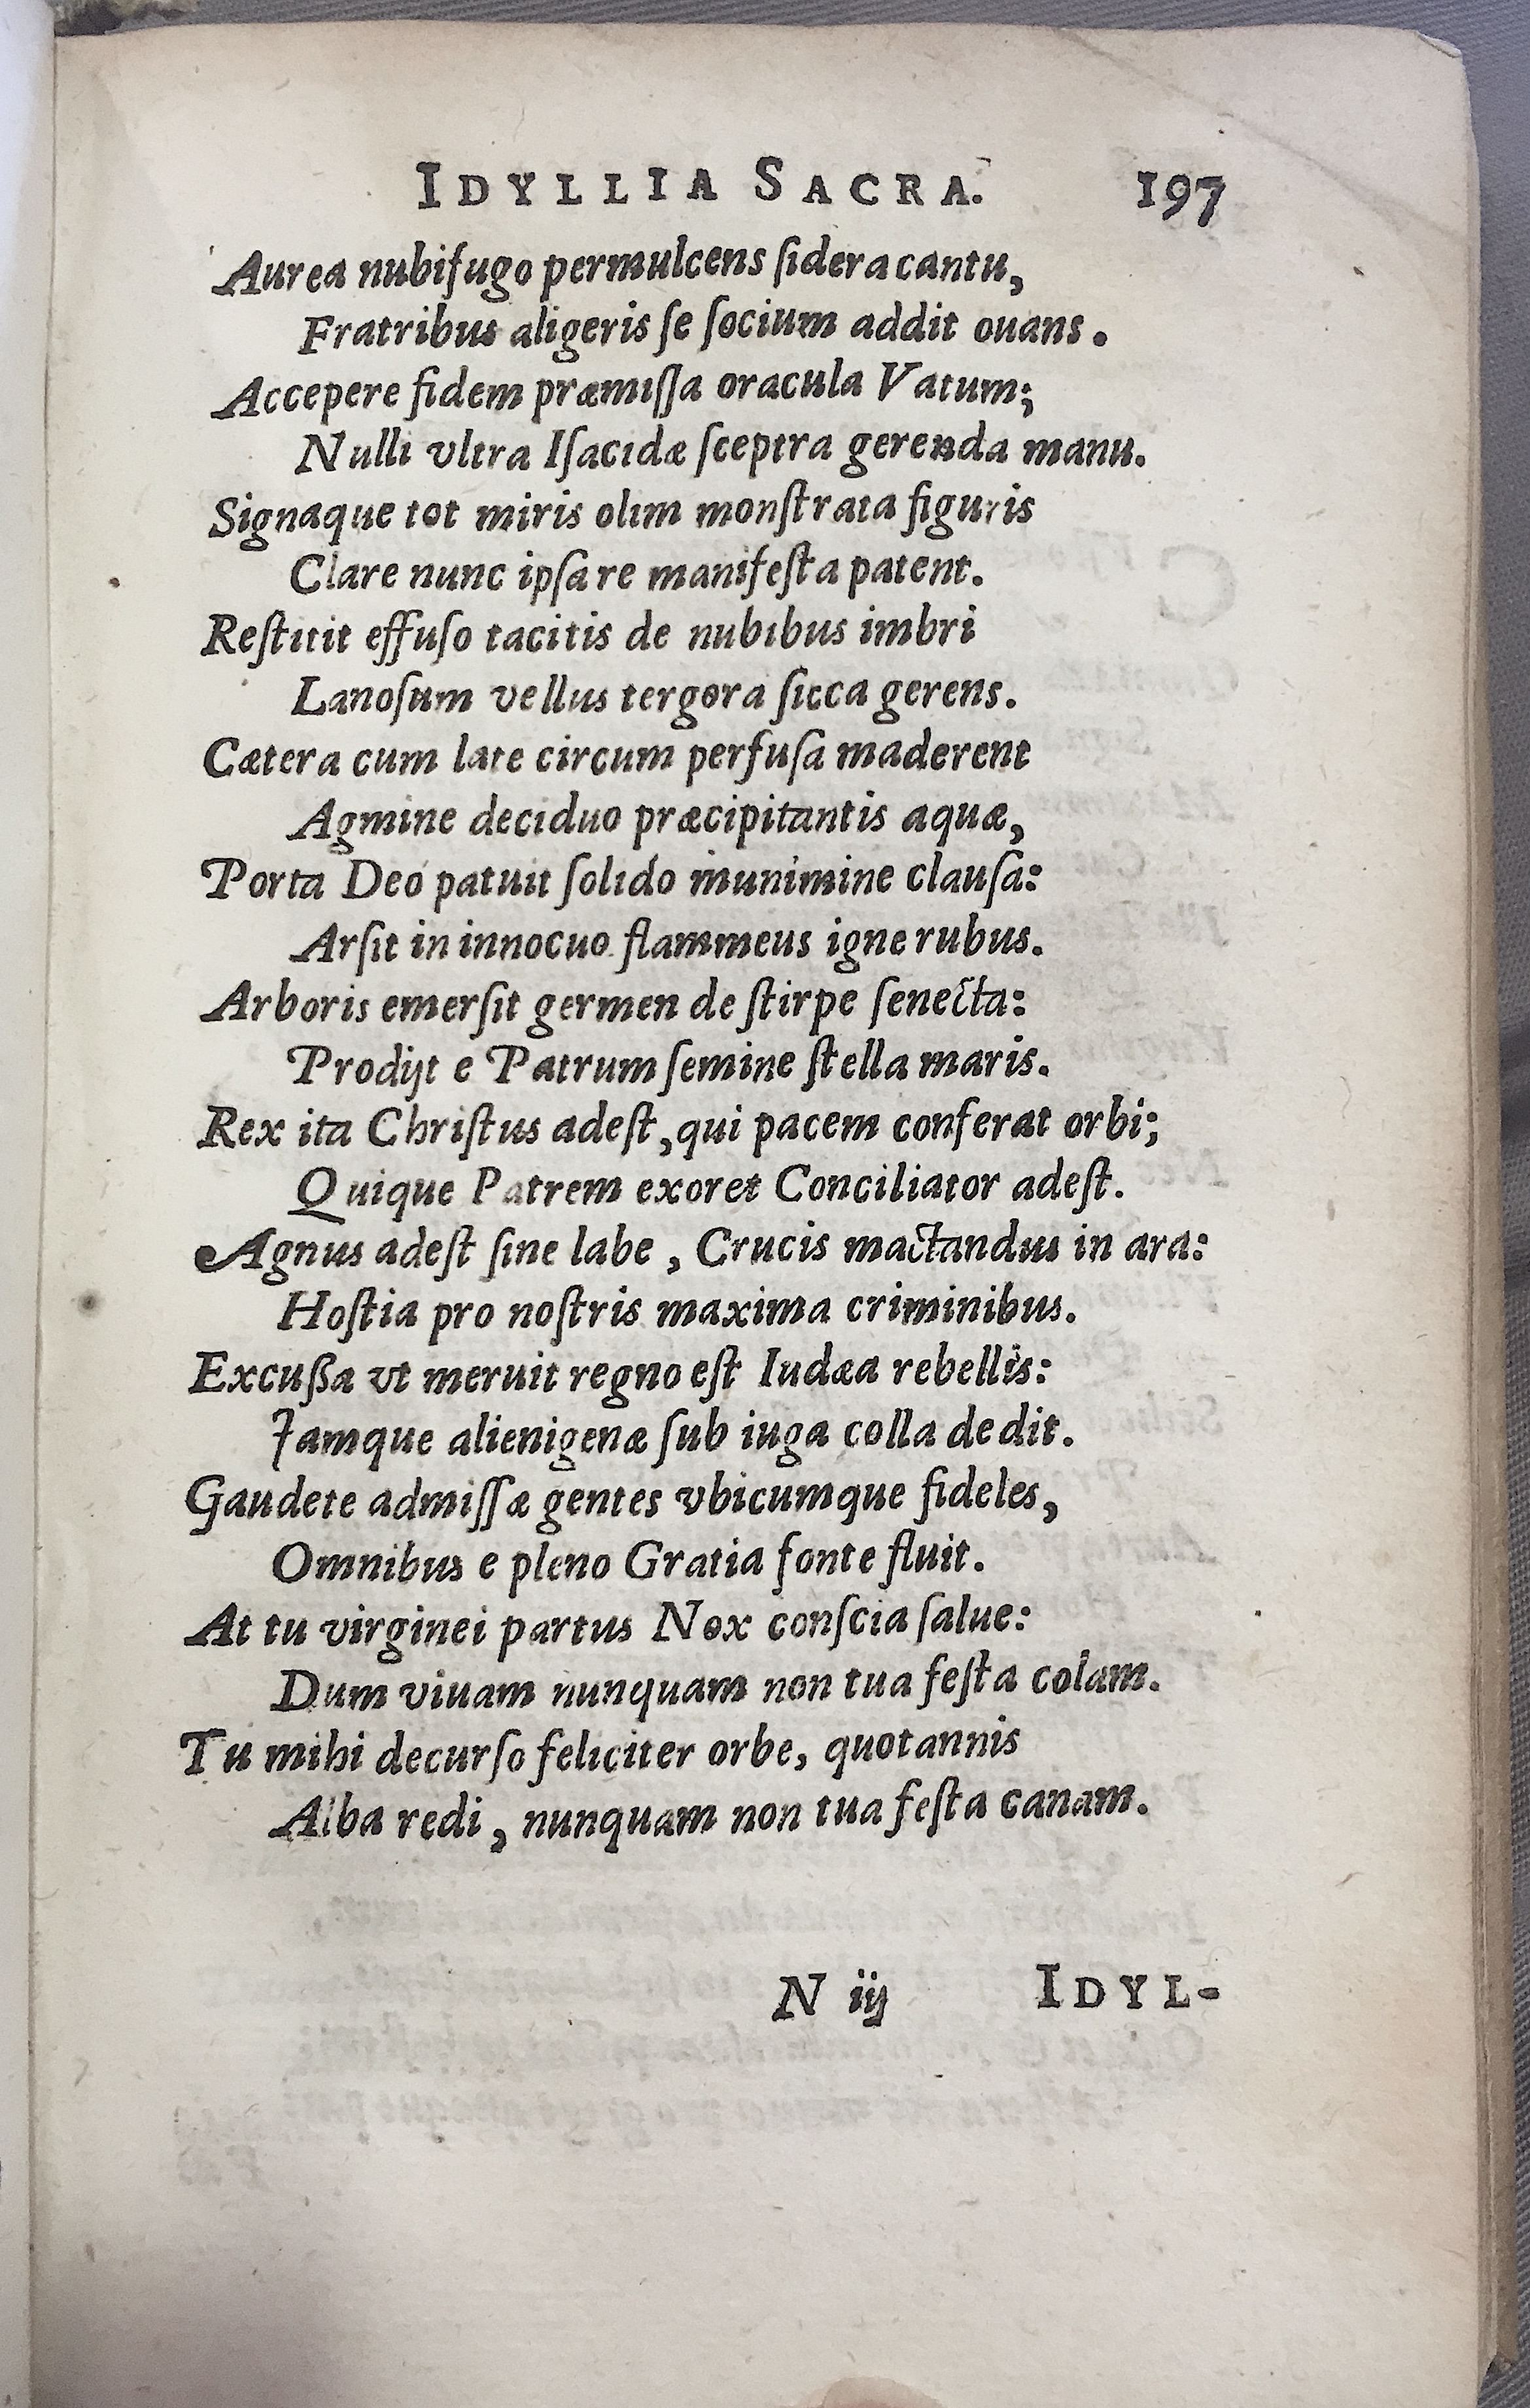 IDYLLIA SACRA. 197
Aurea nubifugo permulcens ſidera cantu,
Fratribus aligeris ſe ſocium addit ouans.
Accepere fidem præmiſſa oracula Vatum;
Nulli vltra Iſacidæ ſceptra gerenda manu.
Signaque tot miris olim monſtrata figuris
Clare nunc ipſa re manifeſta patent.
Reſtitit effuſo tacitis de nubibus imbri
Lanoſum vellus tergora ſicca gerens.
Cætera cum late circum perfuſa maderent
Agmine deciduo præcipitantis aquæ,
Porta Deo patuit ſolido munimine clauſa:
Arſit in innocuo flammeus igne rubus.
Arboris emerſit germen de ſtirpe ſenecta:
Prodijt e Patrum ſemine ſtella maris.
Rex ita Chriſtus adeſt, qui pacem conferat orbi;
Quique Patrem exoret Conciliator adeſt.
Agnus adeſt ſine labe, Crucis mactandus in ara:
Hoſtia pro noſtris maxima criminibus.
Excußa vt meruit regno eſt Iudæa rebellis:
Iamque alienigenæ ſub iuga colla dedit.
Gaudete admiſſæ gentes vbicumque fideles,
Omnibus e pleno Gratia fonte fluit.
At tu virginei partus Nox conſcia ſalue:
Dum viuam nunquam non tua feſta colam.
Tu mihi decurſo feliciter orbe, quotannis
Alba redi, nunquam non tua feſta canam.
N iij IDYL-